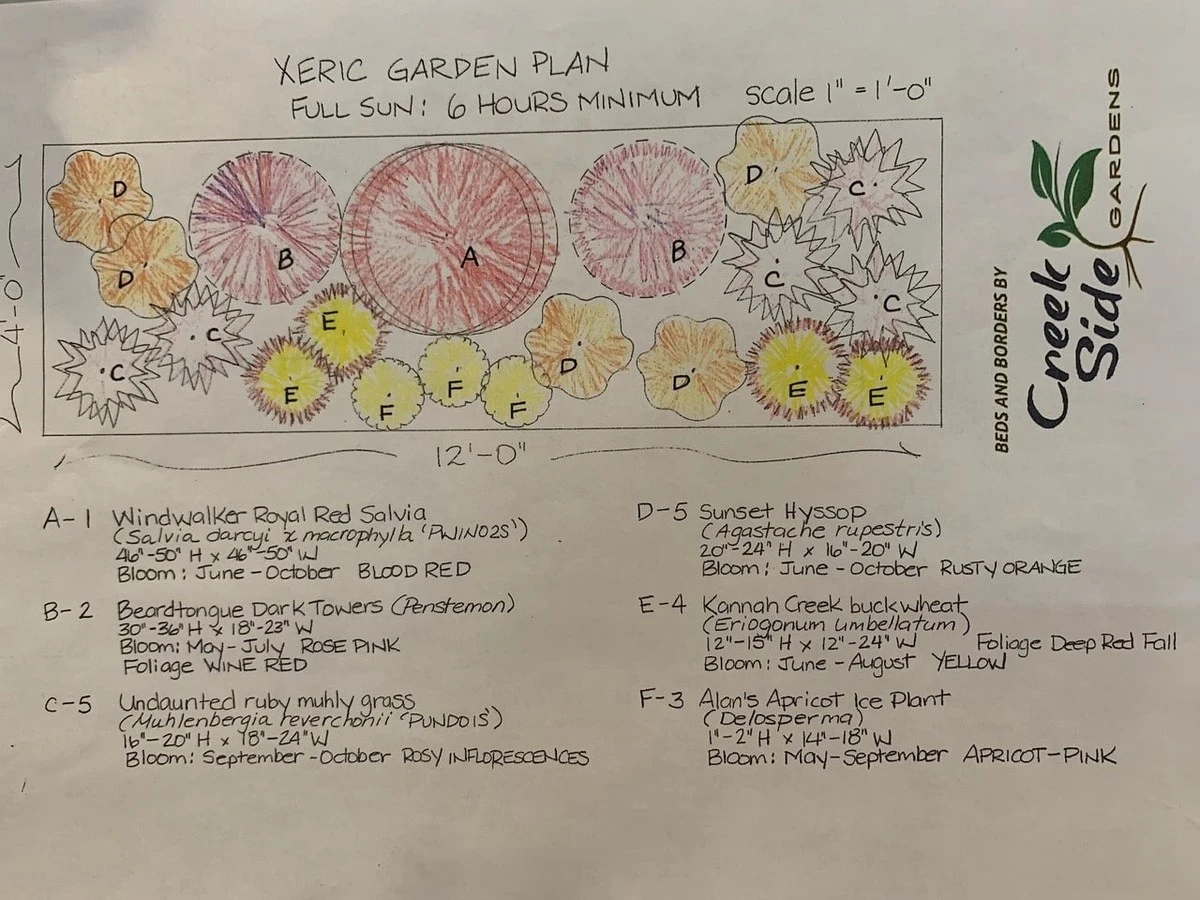 XERIC GARDEN PLAN
FULL SUN: 6 HOURS MINIMUM
scale 1" = 1'-0"
D
D
B
A
B
D
C
C
C
C
C
E
E
F
F
F
D
D
E
E
4'-0"
12'-0"
BEDS AND BORDERS BY
Creek
Side
GARDENS
A-1 Windwalker Royal Red Salvia
(Salvia darcyi x macrophylla 'PWIN02S')
46"-50" H x 46"-50" W
Bloom: June - October BLOOD RED
B-2 Beardtongue Dark Towers (Penstemon)
30"-36" H x 18"-23" W
Bloom: May - July ROSE PINK
Foliage WINE RED
C-5 Undaunted ruby muhly grass
(Muhlenbergia reverchonii 'PUND01S')
16"-20" H x 18"-24" W
Bloom: September - October ROSY INFLORESCENCES
D-5 Sunset Hyssop
(Agastache rupestris)
20"-24" H x 16"-20" W
Bloom: June - October RUSTY ORANGE
E-4 Kannah Creek buckwheat
(Eriogonum umbellatum)
12"-15" H x 12"-24" W Foliage Deep Red Fall
Bloom: June - August YELLOW
F-3 Alan's Apricot Ice Plant
(Delosperma)
1"-2" H x 14"-18" W
Bloom: May-September APRICOT-PINK